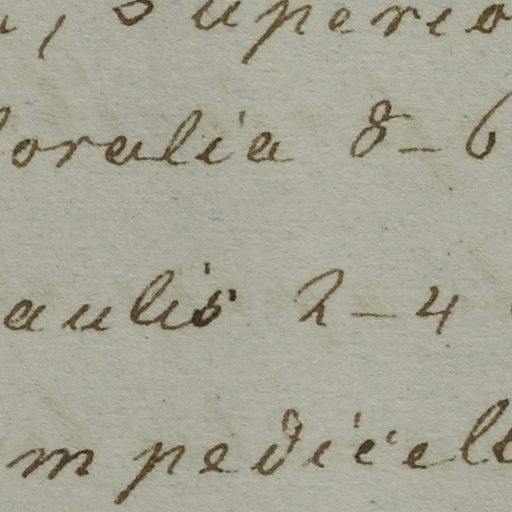 , superio
loralia 8-6
aulis 2-4
m pedicell